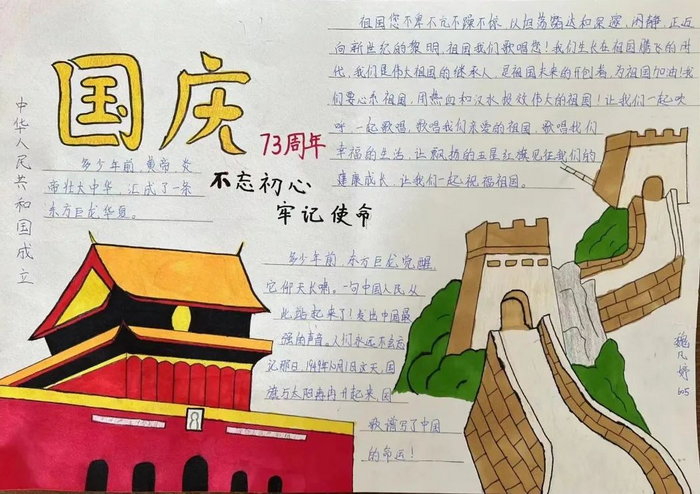 国庆
73周年
不忘初心
牢记使命
中华人民共和国成立
多少年前,黄帝、炎
帝壮大中华,汇成了一条
东方巨龙华夏。
祖国您不卑不亢不躁不惊,从坦荡豁达和深邃,闲静,正迈
向新世纪的黎明,祖国我们歌唱您!我们生长在祖国腾飞的时
代,我们是伟大祖国的继承人,是祖国未来的开创者,为祖国加油!我
们要心系祖国,用热血和汗水报效伟大的祖国!让我们一起欢
呼,一起歌唱,歌唱我们亲爱的祖国,歌唱我们
幸福的生活,让飘扬的五星红旗见证我们的
健康成长,让我们一起祝福祖国。
多少年前,东方巨龙觉醒,
它仰天长啸。一句中国人民从
此站起来了!发出中国最
强的声音。人们永远不会忘
记那日,1949年10月1日这天,国
旗与太阳再内升起来,国
歌谱写了中国
的命运!
魏凡婷
605